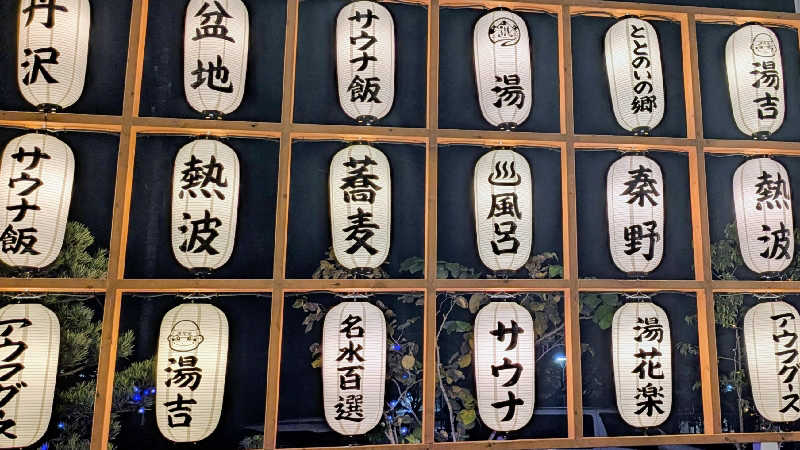 丹沢
盆地
サウナ飯
湯
ととのいの郷
湯吉
サウナ飯
熱波
蕎麦
風呂
秦野
熱波
アウフグース
湯吉
名水百選
サウナ
湯花楽
アウフグース